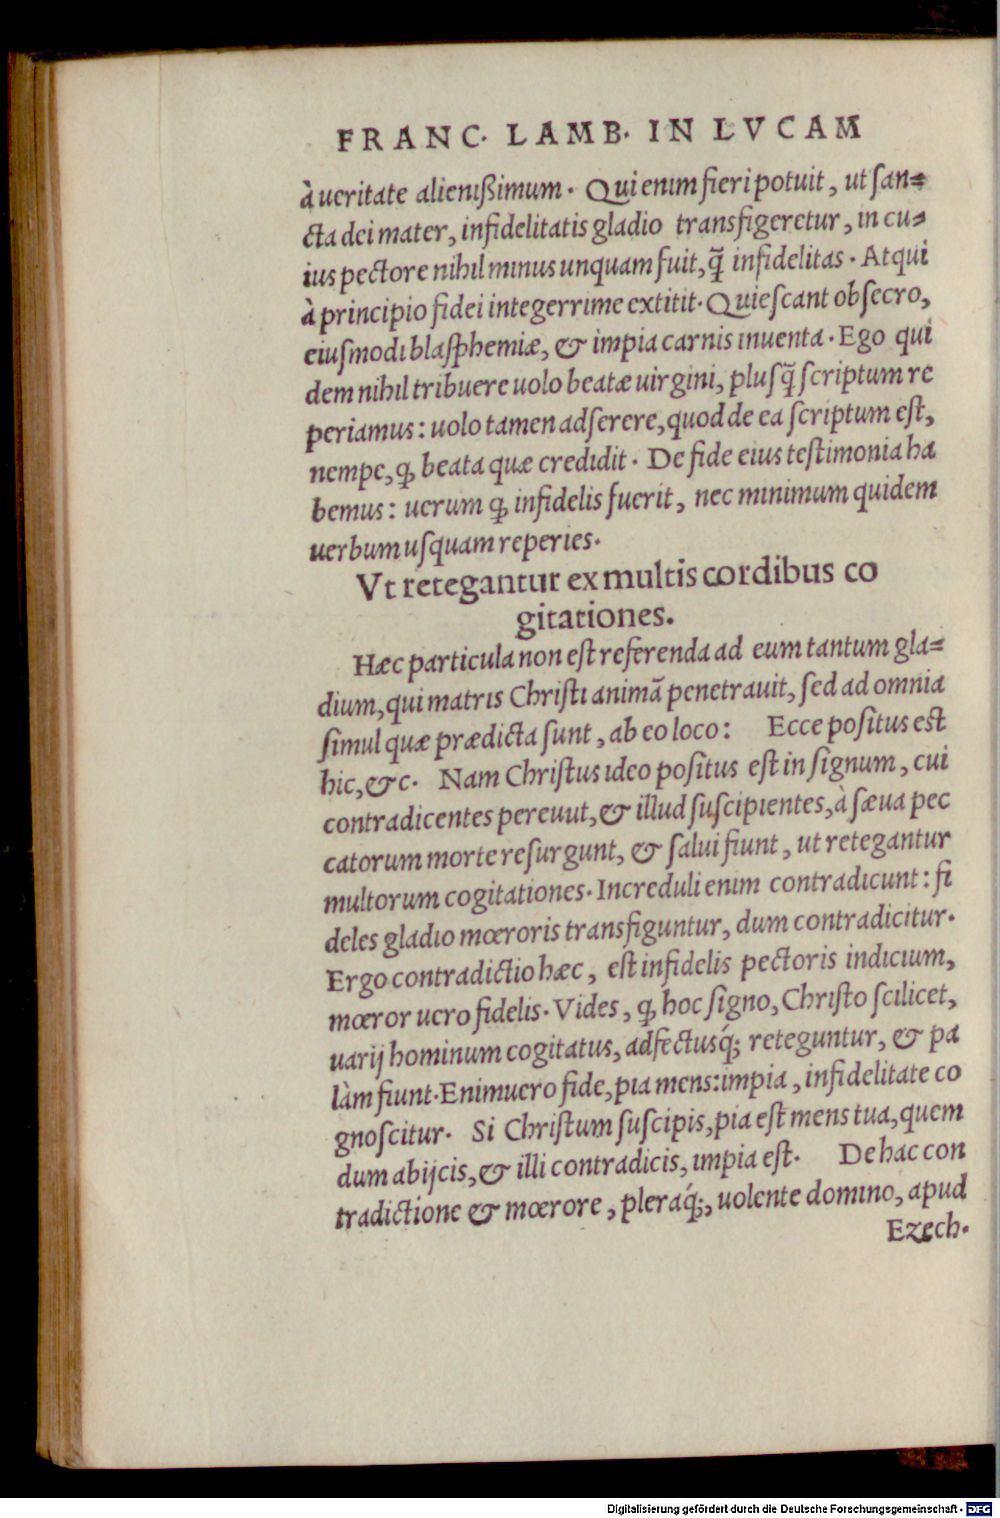 FRANC. LAMB. IN LVCAM
à ueritate alienißimum. Qui enim fieri potuit, ut ſan⸗
cta dei mater, infidelitatis gladio transfigeretur, in cu⸗
ius pectore nihil minus unquam fuit, q̃ infidelitas. Atqui
à principio fidei integerrime extitit. Quieſcant obſecro,
eiuſmodi blaſphemiæ, & impia carnis inuenta. Ego qui
dem nihil tribuere uolo beatæ uirgini, pluſq̃ ſcriptum re
periamus: uolo tamen adſerere, quod de ea ſcriptum eſt,
nempe, ꝙ beata quæ credidit. De fide eius teſtimonia ha
bemus: uerum ꝙ infidelis fuerit, nec minimum quidem
uerbum uſquam reperies.
Vt retegantur ex multis cordibus co
gitationes.
Hæc particula non eſt referenda ad eum tantum gla⸗
dium, qui matris Chriſti animã penetrauit, ſed ad omnia
ſimul quæ prædicta ſunt, ab eo loco: Ecce poſitus eſt
hic, &c. Nam Chriſtus ideo poſitus eſt in ſignum, cui
contradicentes pereuut, & illud ſuſcipientes, à ſæua pec
catorum morte reſurgunt, & ſalui fiunt, ut retegantur
multorum cogitationes. Increduli enim contradicunt: fi
deles gladio mœroris transfiguntur, dum contradicitur.
Ergo contradictio hæc, eſt infidelis pectoris indicium,
mœror uero fidelis. Vides, ꝙ hoc ſigno, Chriſto ſcilicet,
uarij hominum cogitatus, adfectusq́; reteguntur, & pa
làm fiunt. Enimuero fide, pia mens: impia, infidelitate co
gnoſcitur. Si Chriſtum ſuſcipis, pia eſt mens tua, quem
dum abijcis, & illi contradicis, impia eſt. De hac con
tradictione & mœrore, pleraq́;, uolente domino, apud
Ezech.
Digitalisierung gefördert durch die Deutsche Forschungsgemeinschaft - DFG